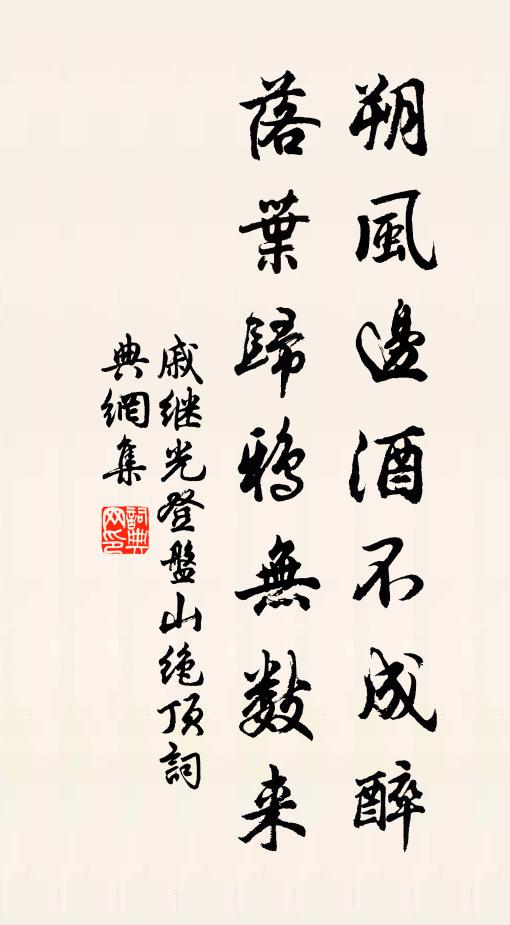 朔風邊酒不成醉
落葉歸鴉無數来
戚継光登盤山绝頂詞
典網集
詞典网印